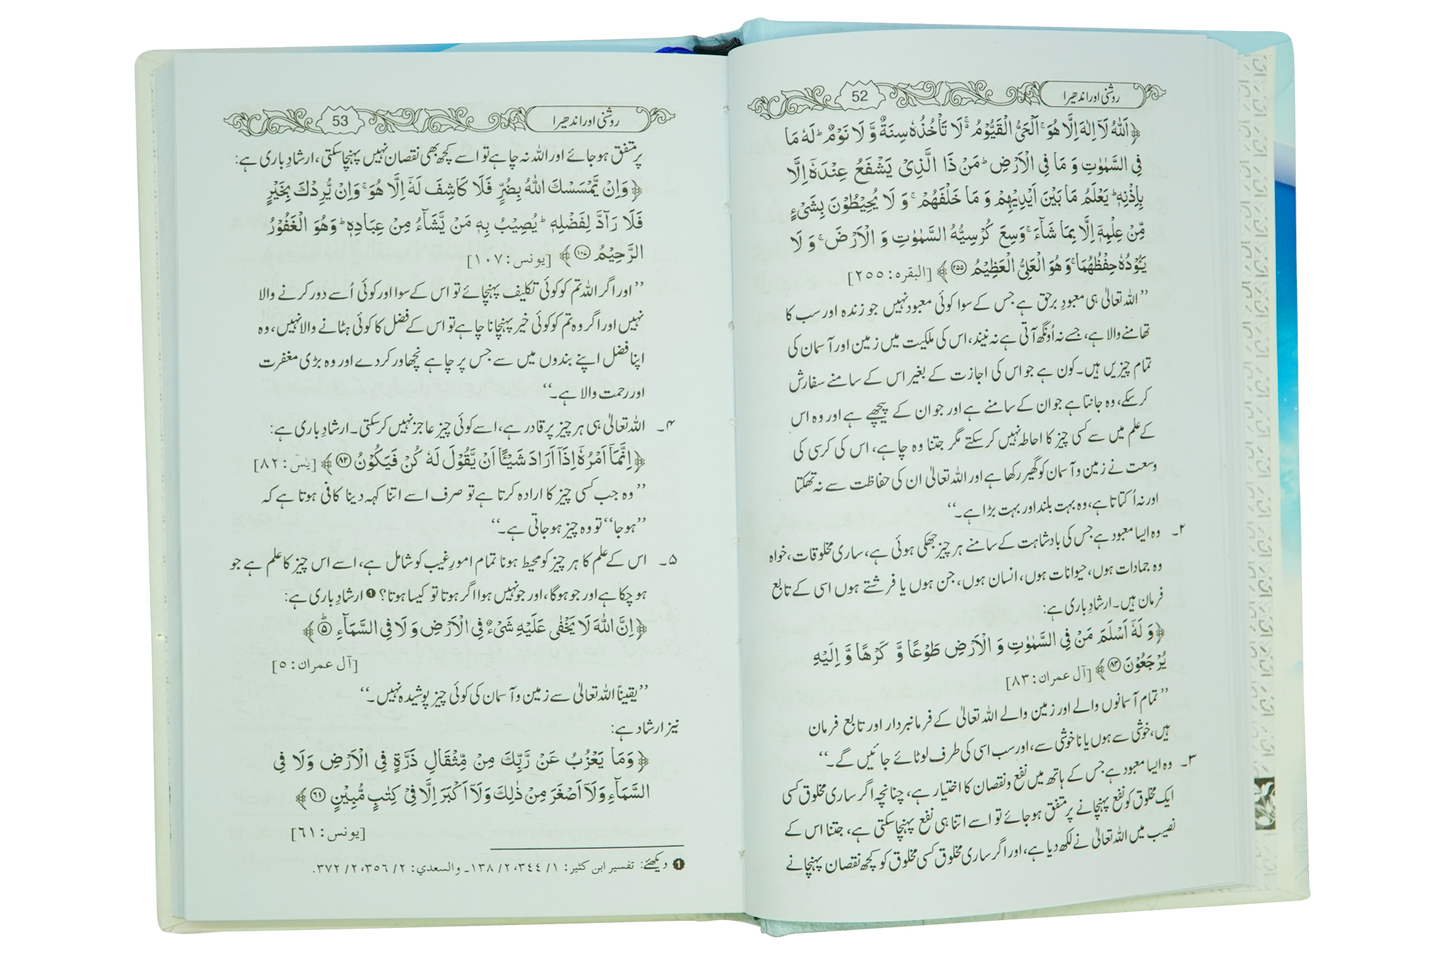 روشنی اور اندھیرا
52
﴿اَللّٰهُ لَاۤ اِلٰهَ اِلَّا هُوَ ۚ اَلْحَیُّ الْقَیُّوْمُ ۚ۬ لَا تَاْخُذُهٗ سِنَةٌ وَّ لَا نَوْمٌ ؕ لَهٗ مَا
فِی السَّمٰوٰتِ وَ مَا فِی الْاَرْضِ ؕ مَنْ ذَا الَّذِیْ یَشْفَعُ عِنْدَهٗۤ اِلَّا
بِاِذْنِهٖ ؕ یَعْلَمُ مَا بَیْنَ اَیْدِیْهِمْ وَ مَا خَلْفَهُمْ ۚ وَ لَا یُحِیْطُوْنَ بِشَیْءٍ
مِّنْ عِلْمِهٖۤ اِلَّا بِمَا شَآءَ ۚ وَسِعَ كُرْسِیُّهُ السَّمٰوٰتِ وَ الْاَرْضَ ۚ وَ لَا
یَـُٔوْدُهٗ حِفْظُهُمَا ۚ وَ هُوَ الْعَلِیُّ الْعَظِیْمُ ۲۵۵﴾ [البقرہ: ۲۵۵]
’’اللہ تعالیٰ ہی معبودِ برحق ہے جس کے سوا کوئی معبود نہیں جو زندہ اور سب کا
تھامنے والا ہے، جسے نہ اُونگھ آتی ہے نہ نیند، اس کی ملکیت میں زمین اور آسمان کی
تمام چیزیں ہیں۔ کون ہے جو اس کی اجازت کے بغیر اس کے سامنے سفارش
کرسکے، وہ جانتا ہے جو ان کے سامنے ہے اور جو ان کے پیچھے ہے اور وہ اس
کے علم میں سے کسی چیز کا احاطہ نہیں کرسکتے مگر جتنا وہ چاہے، اس کی کرسی کی
وسعت نے زمین و آسمان کو گھیر رکھا ہے اور اللہ تعالیٰ ان کی حفاظت سے نہ تھکتا
اور نہ اُکتاتا ہے، وہ بہت بلند اور بہت بڑا ہے۔‘‘
۲۔ وہ ایسا معبود ہے جس کی بادشاہت کے سامنے ہر چیز جھکی ہوئی ہے، ساری مخلوقات، خواہ
وہ جمادات ہوں، حیوانات ہوں، انسان ہوں، جن ہوں یا فرشتے ہوں اسی کے تابع
فرمان ہیں۔ ارشادِ باری ہے:
﴿وَ لَهٗۤ اَسْلَمَ مَنْ فِی السَّمٰوٰتِ وَ الْاَرْضِ طَوْعًا وَّ كَرْهًا وَّ اِلَیْهِ
یُرْجَعُوْنَ ۸۳﴾ [آل عمران: ۸۳]
’’تمام آسمانوں والے اور زمین والے اللہ تعالیٰ کے فرمانبردار اور تابع فرمان
ہیں، خوشی سے ہوں یا ناخوشی سے، اور سب اسی کی طرف لوٹائے جائیں گے۔‘‘
۳۔ وہ ایسا معبود ہے جس کے ہاتھ میں نفع و نقصان کا اختیار ہے، چنانچہ اگر ساری مخلوق کسی
ایک مخلوق کو نفع پہنچانے پر متفق ہوجائے تو اسے اتنا ہی نفع پہنچاسکتی ہے، جتنا اس کے
نصیب میں اللہ تعالیٰ نے لکھ دیا ہے، اور اگر ساری مخلوق کسی مخلوق کو کچھ نقصان پہنچانے
روشنی اور اندھیرا
53
پر متفق ہوجائے اور اللہ نہ چاہے تو اسے کچھ بھی نقصان نہیں پہنچاسکتی، ارشادِ باری ہے:
﴿وَاِنْ یَّمْسَسْكَ اللّٰهُ بِضُرٍّ فَلَا كَاشِفَ لَهٗۤ اِلَّا هُوَ ۚ وَاِنْ یُّرِدْكَ بِخَیْرٍ
فَلَا رَآدَّ لِفَضْلِهٖ ؕ یُصِیْبُ بِهٖ مَنْ یَّشَآءُ مِنْ عِبَادِهٖ ؕ وَهُوَ الْغَفُوْرُ
الرَّحِیْمُ ۱۰۷﴾ [یونس: ۱۰۷]
’’اور اگر اللہ تم کو کوئی تکلیف پہنچائے تو اس کے سوا اور کوئی اُسے دور کرنے والا
نہیں اور اگر وہ تم کو کوئی خیر پہنچانا چاہے تو اس کے فضل کا کوئی ہٹانے والا نہیں، وہ
اپنا فضل اپنے بندوں میں سے جس پر چاہے نچھاور کردے اور وہ بڑی مغفرت
اور رحمت والا ہے۔‘‘
۴۔ اللہ تعالیٰ ہی ہر چیز پر قادر ہے، اسے کوئی چیز عاجز نہیں کرسکتی۔ ارشادِ باری ہے:
﴿اِنَّمَاۤ اَمْرُهٗۤ اِذَاۤ اَرَادَ شَیْـًٔا اَنْ یَّقُوْلَ لَهٗ كُنْ فَیَكُوْنُ ۸۲﴾ [یٰس: ۸۲]
’’وہ جب کسی چیز کا ارادہ کرتا ہے تو صرف اسے اتنا کہہ دینا کافی ہوتا ہے کہ
’’ہوجا‘‘ تو وہ چیز ہوجاتی ہے۔‘‘
۵۔ اس کے علم کا ہر چیز کو محیط ہونا تمام امورِ غیب کو شامل ہے، اسے اس چیز کا علم ہے جو
ہوچکا ہے اور جو ہوگا، اور جو نہیں ہوا اگر ہوتا تو کیسا ہوتا؟ ❶ ارشادِ باری ہے:
﴿اِنَّ اللّٰهَ لَا یَخْفٰی عَلَیْهِ شَیْءٌ فِی الْاَرْضِ وَ لَا فِی السَّمَآءِ ؕ ۵﴾
[آل عمران: ۵]
’’یقیناً اللہ تعالیٰ سے زمین و آسمان کی کوئی چیز پوشیدہ نہیں۔‘‘
نیز ارشاد ہے:
﴿وَمَا یَعْزُبُ عَنْ رَّبِّكَ مِنْ مِّثْقَالِ ذَرَّةٍ فِی الْاَرْضِ وَلَا فِی
السَّمَآءِ وَلَاۤ اَصْغَرَ مِنْ ذٰلِكَ وَلَاۤ اَكْبَرَ اِلَّا فِیْ كِتٰبٍ مُّبِیْنٍ ۶۱﴾
[یونس: ۶۱]
❶ دیکھئے: تفسیر ابن کثیر: ۱/ ۳۴۴، ۲/ ۱۳۸۔ والسعدي: ۲/ ۳۵۶، ۲/ ۳۷۲.